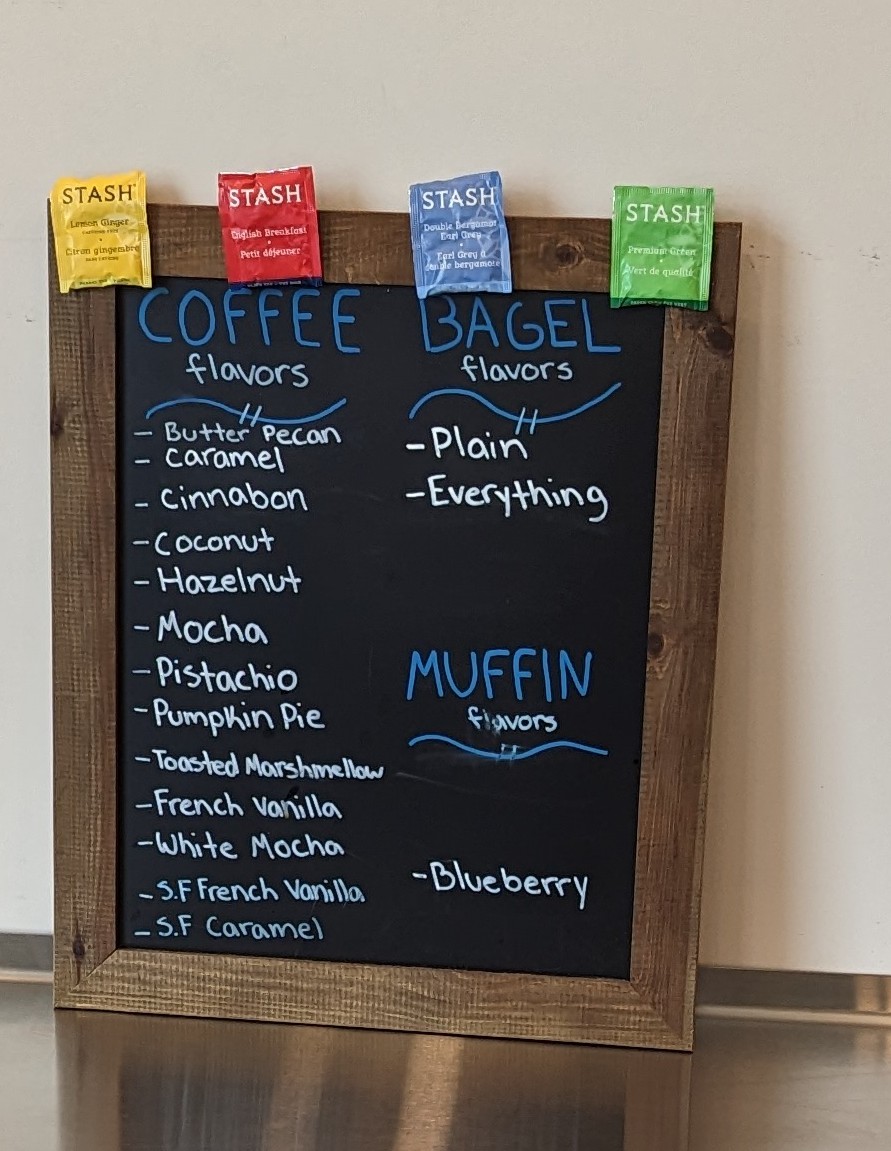 STASH
Lemon Ginger
Citron gingembre
STASH
English Breakfast
Petit déjeuner
STASH
Double Bergamot
Earl Grey
Earl Grey à
double bergamote
STASH
Premium Green
Vert de qualité
COFFEE
flavors
- Butter Pecan
- Caramel
- Cinnabon
- Coconut
- Hazelnut
- Mocha
- Pistachio
- Pumpkin Pie
- Toasted Marshmellow
- French Vanilla
- White Mocha
- S.F French Vanilla
- S.F Caramel
BAGEL
flavors
- Plain
- Everything
MUFFIN
flavors
- Blueberry